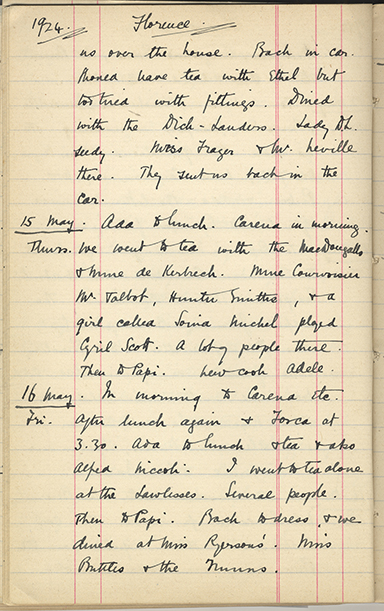 1924. Florence.
us over the house. Back in car.
Phoned have tea with Ethel but
too tired with fittings. Dined
with the Dick-Lauders. Lady D.L.
seedy. Miss Frazer & Mr. Neville
there. They sent us back in the
car.
15 May. Ada to lunch. Carena in morning.
Thurs. We went to tea with the MacDougalls
& Mme de Kerbrech. Mme Courvoisier
Mr. Talbot, Hunter Smiths, & a
girl called Sonia Michel played
Cyril Scott. A lot of people there.
Then to Papi. New cook Adele.
16 May. In morning to Carena etc.
Fri. After lunch again & Tosca at
3.30. Ada to lunch & tea & also
Alfred Niccoli. I went to tea alone
at the Lawlesses. Several people.
Then to Papi. Back to dress, & we
dined at Miss Ryersons'. Miss
& the Nunns.